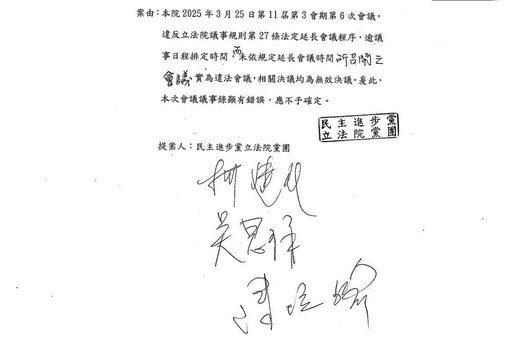 案由：本院 2025 年 3 月 25 日第 11 屆第 3 會期第 6 次會議，
違反立法院議事規則第 27 條法定延長會議程序，逾議
事日程排定時間而未依規定延長會議時間所召開之
會議實為違法會議，相關決議均為無效決議。爰此，
本次會議議事錄顯有錯誤，應不予確定。
民主進步黨
立法院黨團
提案人：民主進步黨立法院黨團
吳思瑤